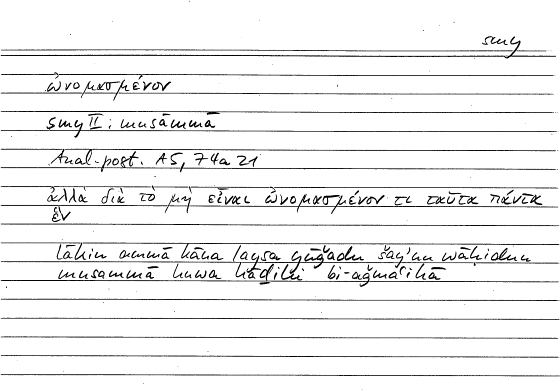 smy
ὠνομασμένον
smy II: musāmmā
Anal. post. A5, 74a 21
ἀλλὰ διὰ τὸ μὴ εἶναι ὠνομασμένον τι ταῦτα πάντα
ἕν
lākin ammā kāna laysa yūǧadu šayʾun wāḥidun
musammā huwa hāḏihi bi-aǧmaʿihā